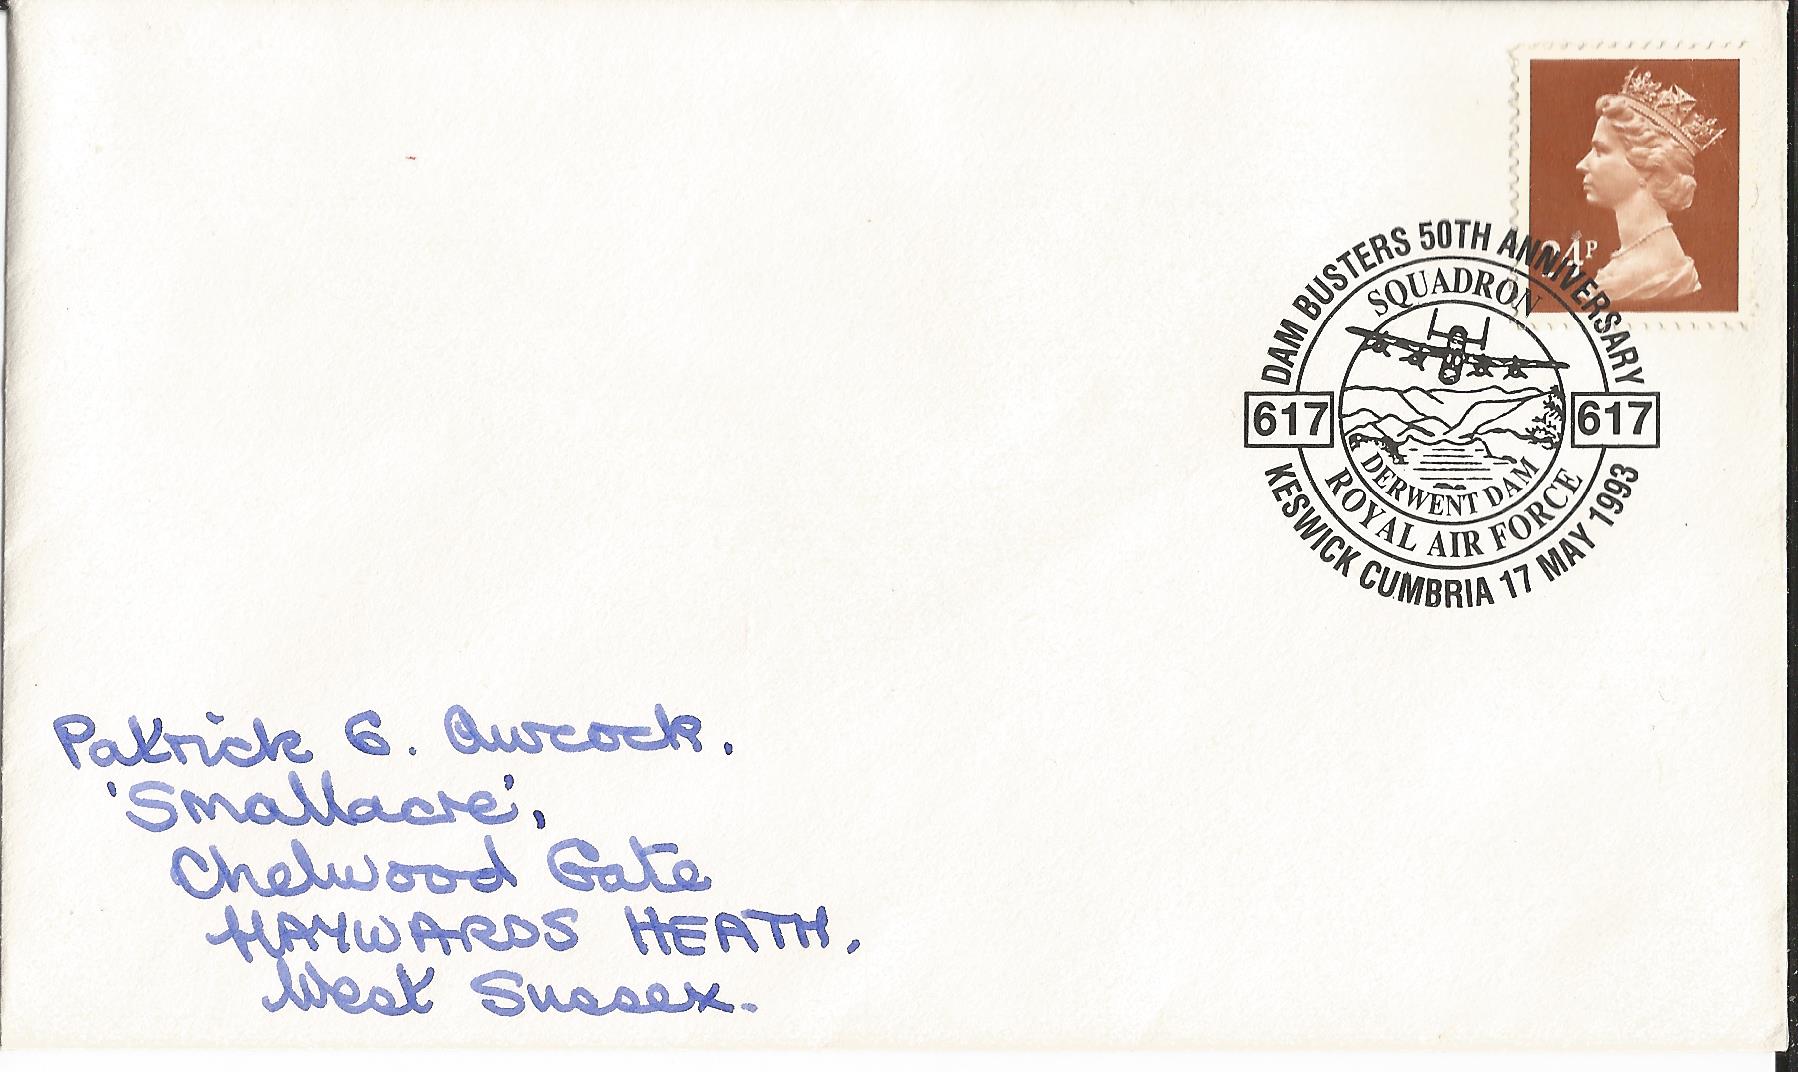 24P
DAM BUSTERS 50TH ANNIVERSARY
SQUADRON
617 617
DERWENT DAM
ROYAL AIR FORCE
KESWICK CUMBRIA 17 MAY 1993
Patrick G. Awcock.
'Smallacre',
Chelwood Gate
HAYWARDS HEATH,
West Sussex.